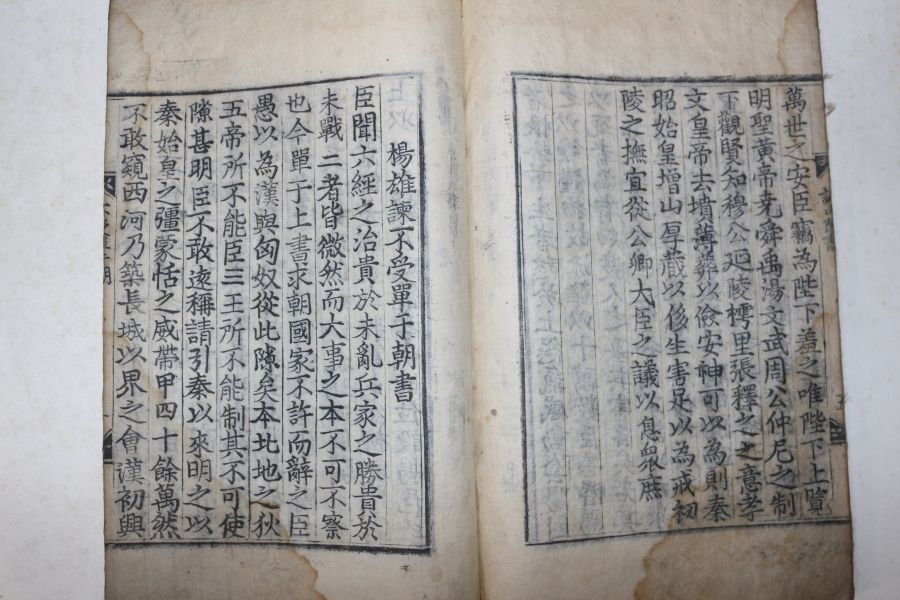 萬世之安臣竊為陛下羞之唯陛下上覽
明聖黃帝堯舜禹湯文武周公仲尼之制
下觀賢知穆公延陵樗里張釋之之意孝
文皇帝去墳薄葬以儉安神可以為則秦
昭始皇增山厚藏以侈生害足以為戒初
陵之撫宜從公卿大臣之議以息衆庶
楊雄諫不受單于朝書
臣聞六經之治貴於未亂兵家之勝貴於
未戰二者皆微然而大事之本不可不察
也今單于上書求朝國家不許而辭之臣
愚以為漢與匈奴從此隙矣本北地之狄
五帝所不能臣三王所不能制其不可使
隙甚明臣不敢遠稱請引秦以來明之以
秦始皇之彊蒙恬之威帶甲四十餘萬然
不敢窺西河乃築長城以界之會漢初興